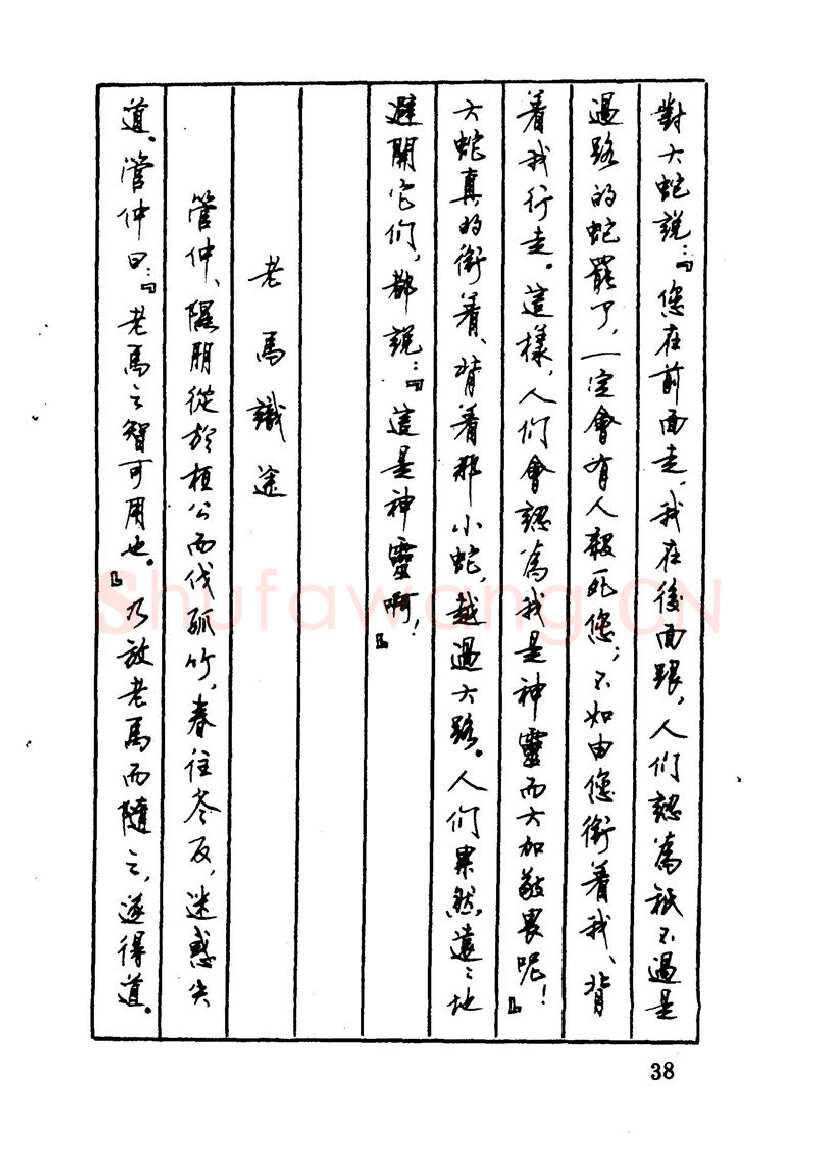 對大蛇説：『您在前面走，我在後面跟，人们認為祇不過是
過路的蛇罷了，一定會有人殺死您；不如由您銜着我、背
着我行走。這樣，人们會認為我是神靈而大加敬畏呢！』
大蛇真的銜着、背着那小蛇，越過大路。人们果然遠〻地
避開它们，都説：『這是神靈啊！』
老馬識途
管仲、隰朋從於桓公而伐孤竹，春往冬反，迷惑失
道。管仲曰：『老馬之智可用也。』乃放老馬而隨之，遂得道。
38
Shufawang.CN